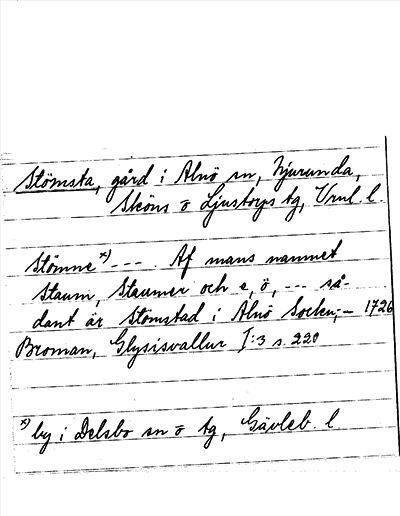 Stömsta, gård i Alnö sn, Njurunda,
Sköns o Ljustorps tg, Vrnl. l.
Stömne x) --- . Af mans namnet
Staum, Staumer och e, ö, --- så-
dant är Stömstad i Alnö Socken; - 1726
Broman, Glysisvallur I:3 s. 220
x) by i Delsbo sn o tg, Gävleb. l